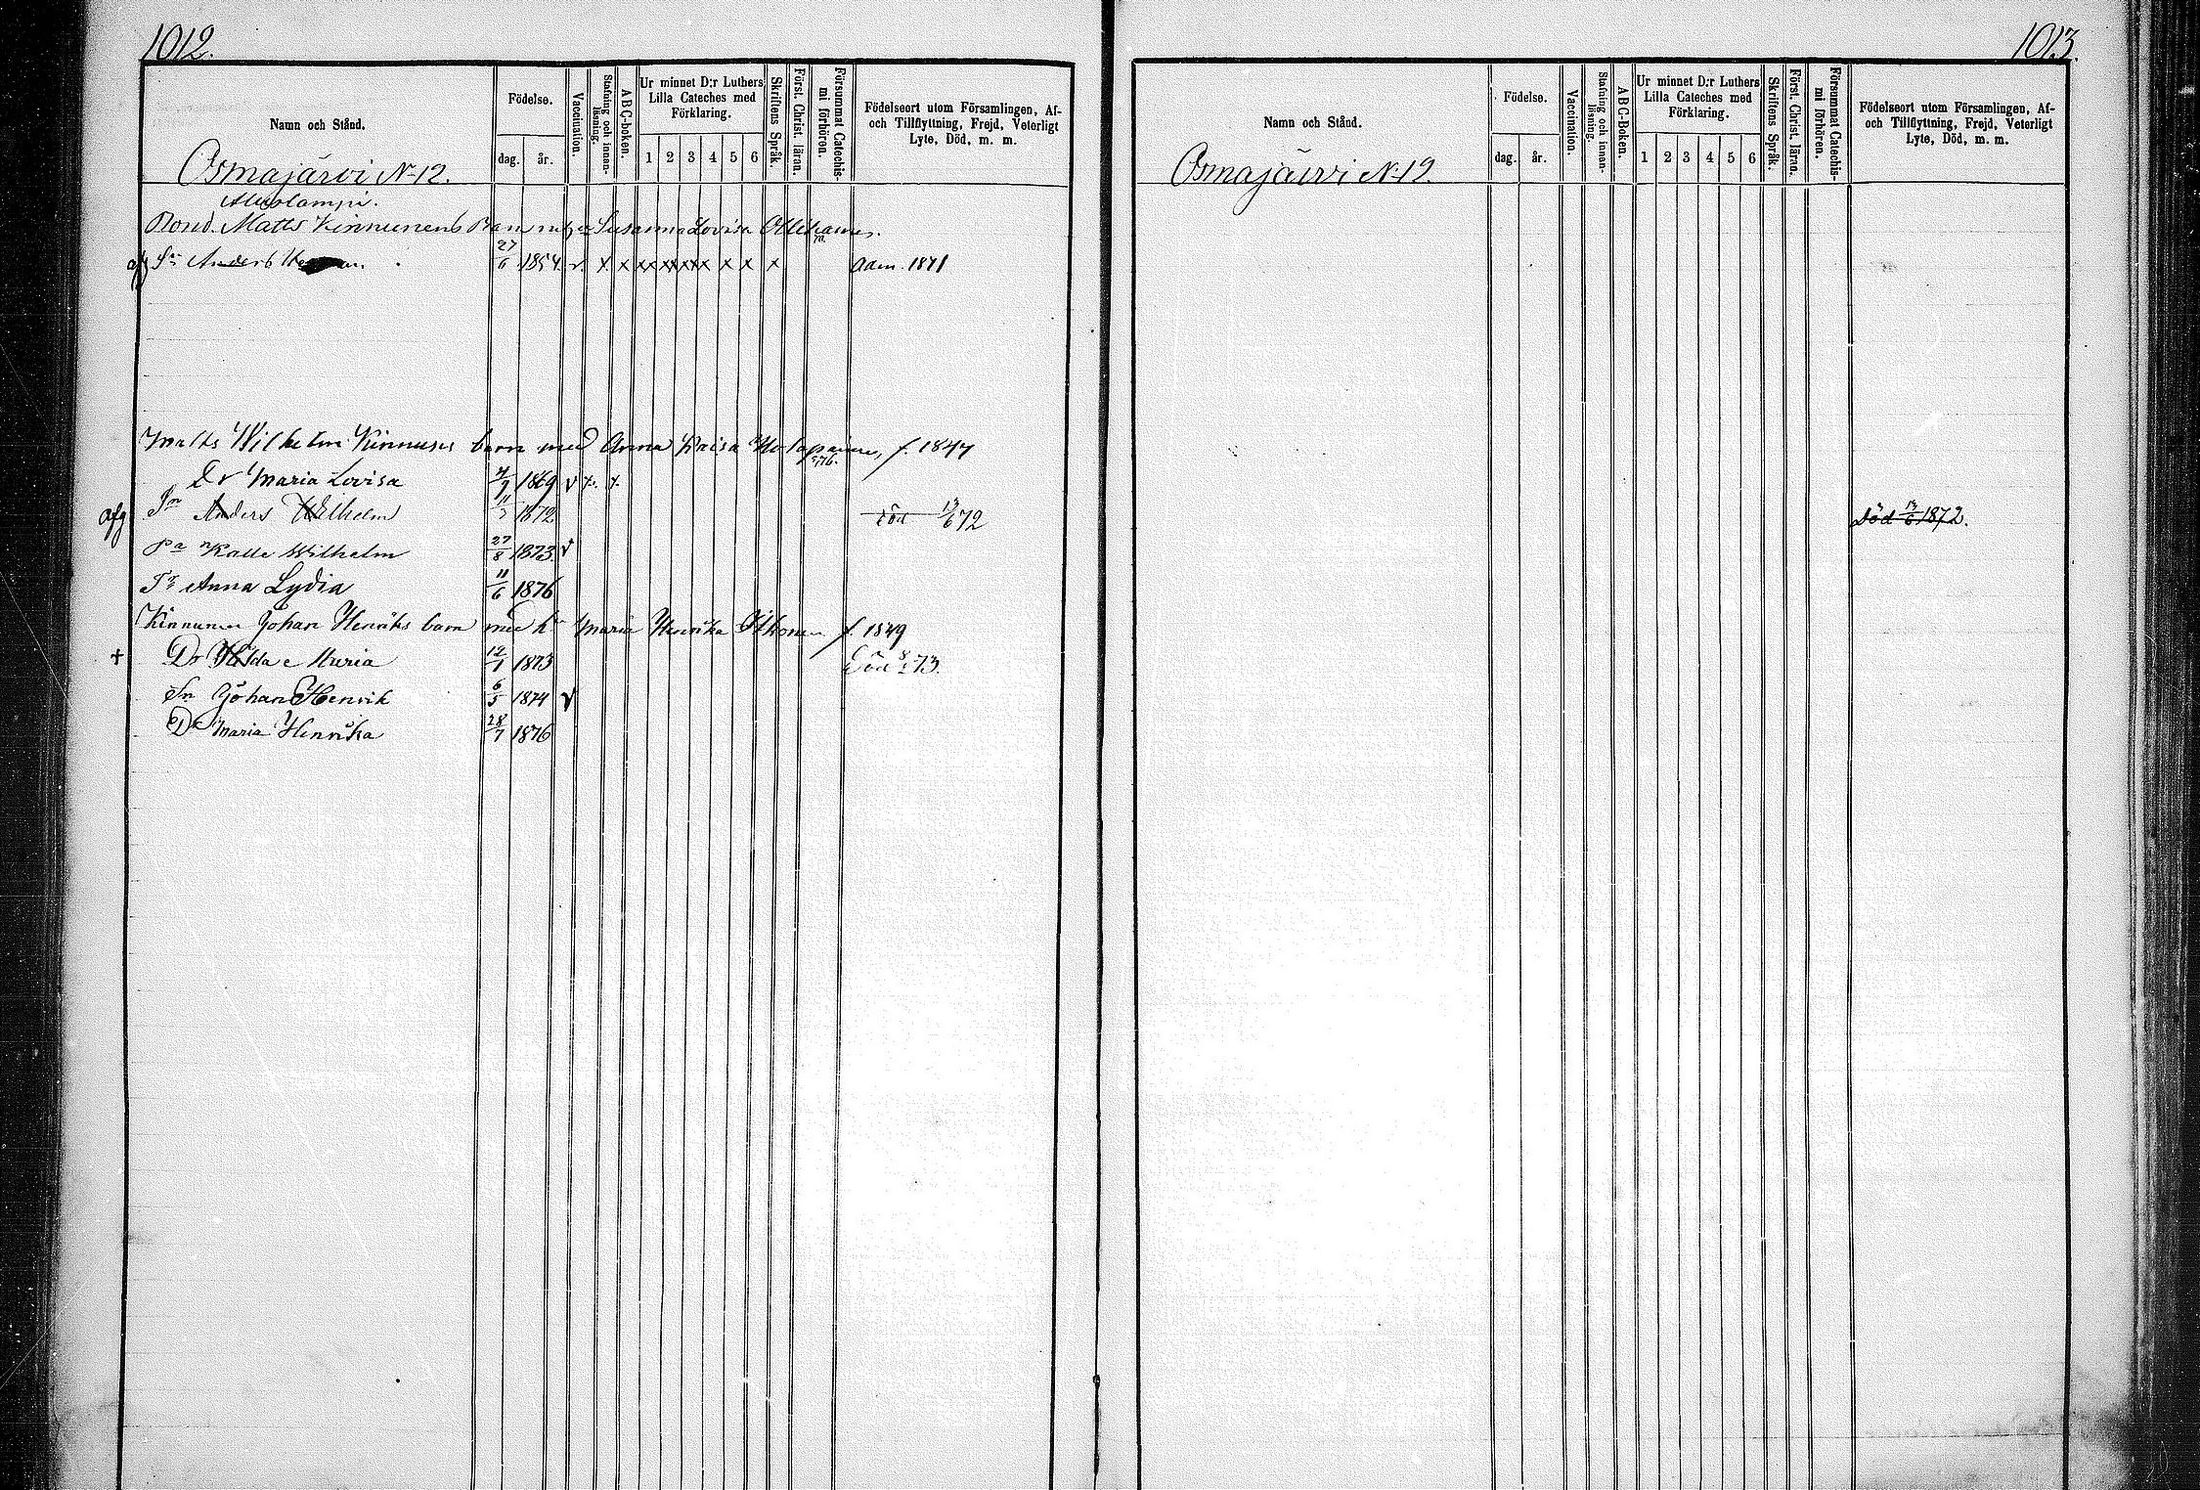 1012.
Namn och Stånd.
Födelse.
dag. år.
Vaccination.
Stafning och innan-läsning.
ABC-boken.
Ur minnet D:r Luthers
Lilla Cateches med
Förklaring.
1 2 3 4 5 6
Skriftens Språk.
Först. Christ. läran.
Försummat Catechis-
mi förhören.
Födelseort utom Församlingen, Af-
och Tillflyttning, Frejd, Veterligt
Lyte, Död, m. m.
Osmajärvi N:12.
Bond. Matts Kinnunens Barn Susanna Lovisa
afg Sn Anders 27/6 1854. v. x x xx xx xx x x x x Adm. 1871
Matts Wilhelm Kinnunes barn med Anna Kaisa f. 1847
Dr Maria Lovisa 1869 v x. x.
afg Sn Anders Wilhelm 1872 död 13/6 72
Kalle Wilhelm 27/8 1873. v
Anna Lydia 11/6 1876
Kinnunen Johan Henriks barn med h Maria Henrika f. 1849
+ Dr Hilda Maria 12/1 1873 Död 73.
Sn Johan Henrik 6/5 1874 v
Dr Maria Henrika 28/7 1876
1013.
Namn och Stånd.
Födelse.
dag. år.
Vaccination.
Stafning och innan-
läsning.
ABC-Boken.
Ur minnet D:r Luthers
Lilla Cateches med
Förklaring.
1 2 3 4 5 6
Skriftens Språk.
Först. Christ. läran.
Försummat Catechis-
mi förhören.
Födelseort utom Församlingen, Af-
och Tillflyttning, Frejd, Veterligt
Lyte, Död, m. m.
Osmajärvi N:12.
Död 13/6 1872.